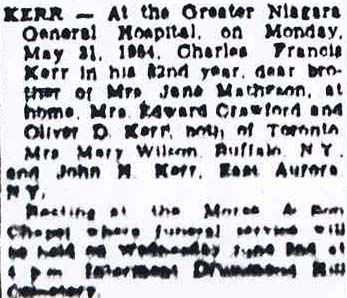 KERR — At the Greater Niagara
General Hospital, on Monday,
May 31, 1964, Charles Francis
Kerr in his 82nd year, dear bro-
ther of Mrs. Jane Matheson, at
home, Mrs. Edward Crawford and
Oliver D. Kerr, both of Toronto
Mrs Mary Wilson, Buffalo, N.Y.
and John H. Kerr, East Aurora
N.Y.
Resting at the Morse & Son
Chapel where funeral service will
be held on Wednesday June 2nd at
p.m. Interment Drummond Hill
Cemetery.